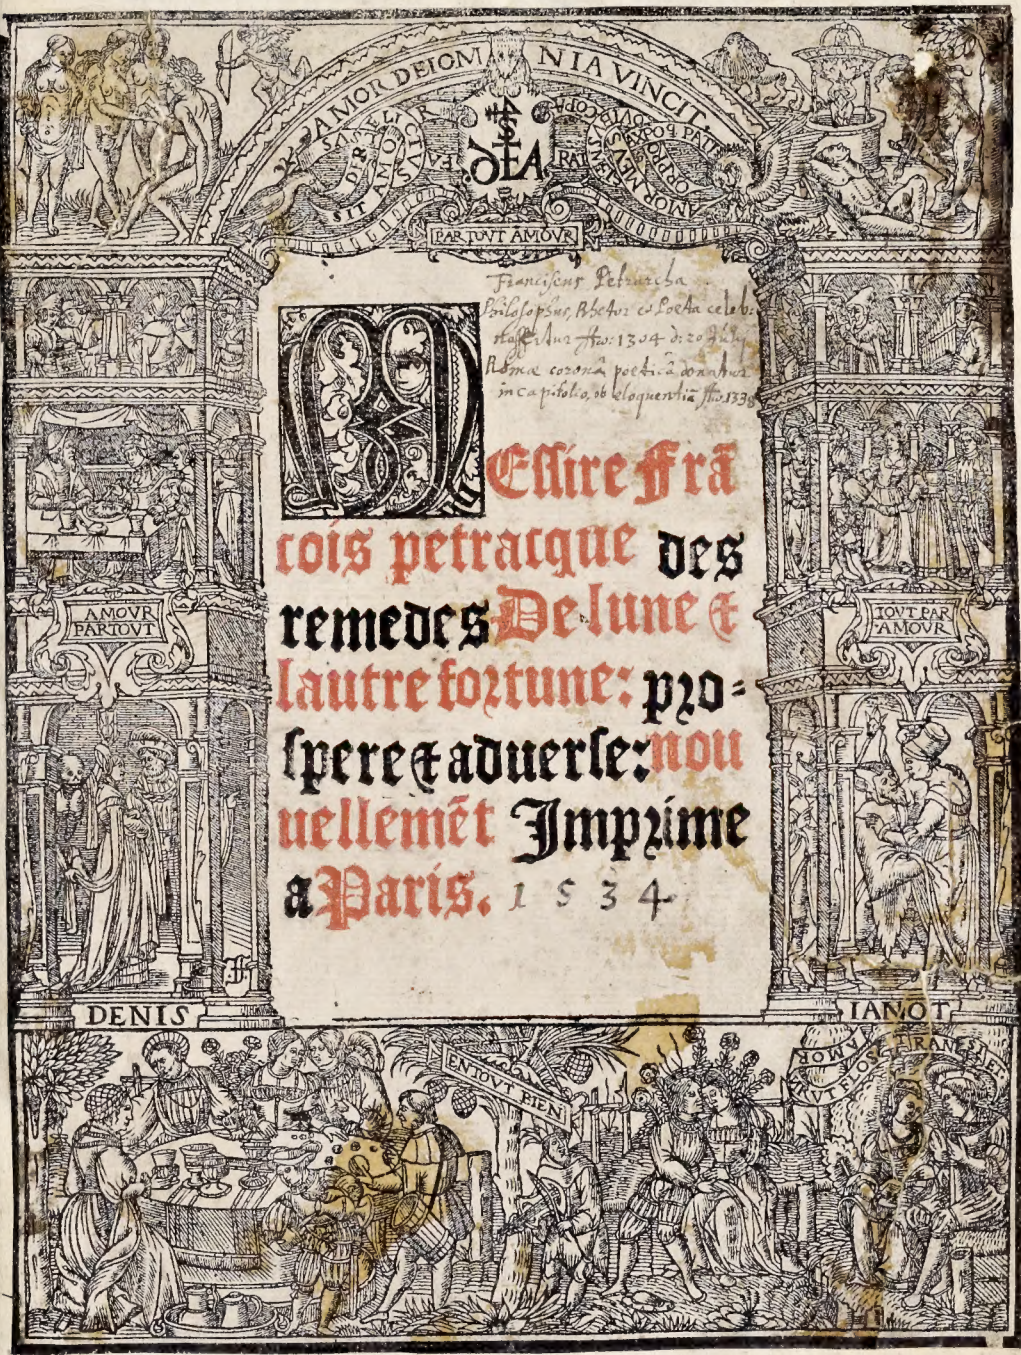 AMOR DEI OMNIA VINCIT.
PAR TOVT AMOVR
Franciscus Petrarcha
Philosophus, Rhetor et Poeta celeb:
Romæ coronâ poeticâ donatur
in Capitolio, ob eloquentiā Aō. 1338
MEſſire Frā
cois petracque des
remedes De lune ⁊
lautre fortune: pro-
ſpere ⁊ aduerſe: nou
uellemēt Imprime
a Paris. 1534
AMOVR
PARTOVT
TOVT PAR
AMOVR
DENIS
IANOT
EN TOVT BIEN